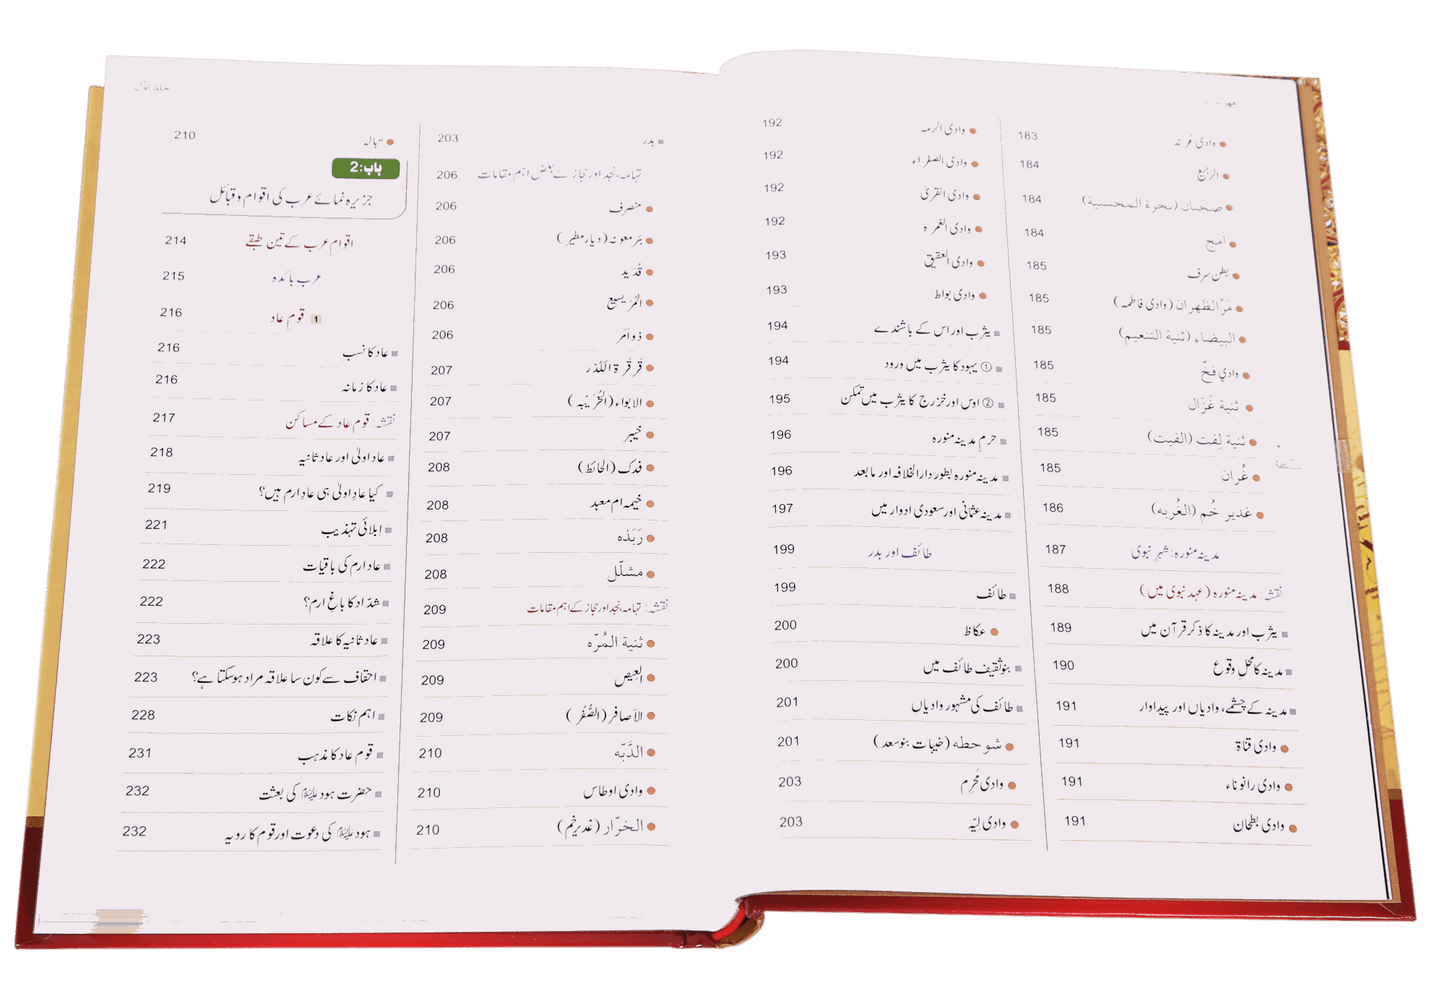 وادی عُرنہ 183
الربیع 184
ضجنان (بحرة المحسنية) 184
أمَج 184
بطن سرف 185
مَرّ الظہران (وادی فاطمہ) 185
البیضاء (ثنية التنعيم) 185
وادي فخّ 185
ثنية غَزَال 185
ثنية لِفت (الفيت) 185
غُران 185
غدير خُم (الغُربه) 186
مدینہ منورہ: شہرِ نبوی 187
نقشہ: مدینہ منورہ (عہد نبوی میں) 188
یثرب اور مدینہ کا ذکر قرآن میں 189
مدینہ کا محل وقوع 190
مدینہ کے چشمے، وادیاں اور پیداوار 191
وادی قناة 191
وادی رانوناء 191
وادی بطحان 191
وادی الرمہ 192
وادی الصفراء 192
وادی القریٰ 192
وادی الغمرہ 192
وادی العقیق 193
وادی بواط 193
یثرب اور اس کے باشندے 194
① یہود کا یثرب میں ورود 194
② اوس اور خزرج کا یثرب میں تمکن 195
حرمِ مدینہ منورہ 196
مدینہ منورہ بطور دارالخلافہ اور مابعد 196
مدینہ عثمانی اور سعودی ادوار میں 197
طائف اور بدر 199
طائف 199
عکاظ 200
بنوثقیف طائف میں 200
طائف کی مشہور وادیاں 201
شوحطه (خیبات بنوسعد) 201
وادی مَحْرِم 203
وادی لِیّہ 203
جلد اول
بدر 203
تہامہ، نجد اور حجاز کے بعض اہم مقامات 206
منصرف 206
بئر معونہ (دیار مطیر) 206
قُدَید 206
المُریسیع 206
ذوامَر 206
قَرقَرة الکُدر 207
الابواء (الخُرَیبہ) 207
خیبر 207
فدک (الحائط) 208
خیمہ ام معبد 208
رَبَذہ 208
مشلّل 208
نقشہ: تہامہ، نجد اور حجاز کے اہم مقامات 209
ثنية المُرّہ 209
العیص 209
الاصافر (الصُّفُر) 209
الدَّبّہ 210
وادی اوطاس 210
الخرّار (غدیر خم) 210
تبالہ 210
باب:2
جزیرہ نمائے عرب کی اقوام و قبائل
اقوامِ عرب کے تین طبقے 214
عرب بائدہ 215
1 قومِ عاد 216
عاد کا نسب 216
عاد کا زمانہ 216
نقشہ: قوم عاد کے مساکن 217
عاد اولیٰ اور عاد ثانیہ 218
کیا عادِ اولیٰ ہی عادِ ارم ہیں؟ 219
اِبلائی تہذیب 221
عاد ارم کی باقیات 222
شدّاد کا باغِ ارم؟ 222
عاد ثانیہ کا علاقہ 223
احقاف سے کون سا علاقہ مراد ہوسکتا ہے؟ 223
اہم نکات 228
قوم عاد کا مذہب 231
حضرت ہود علیہ السلام کی بعثت 232
ہود علیہ السلام کی دعوت اور قوم کا رویہ 232